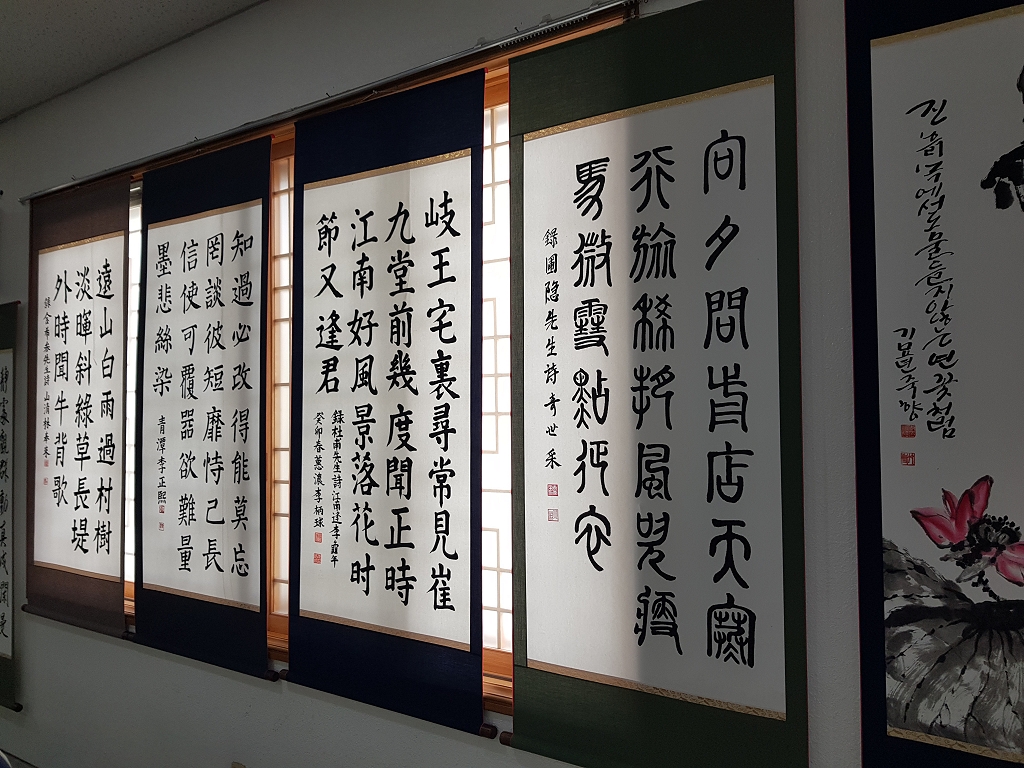 진흙 속에서도 물들지 않는 연꽃처럼
向夕問前店天寒
行旅稀朔風吹瘦
馬微雪點征衣
錄圃隐先生詩 奇世采
岐王宅裏尋常見崔
九堂前幾度聞正時
江南好風景落花时
節又逢君
錄杜甫先生詩江南逢李龜年
癸卯春蕙濃李柄球
知過必改得能莫忘
罔談彼短靡恃己長
信使可覆器欲難量
墨悲絲染
青潭李正熙
遠山白雨過村樹
淡暉斜綠草長堤
外時聞牛背歌